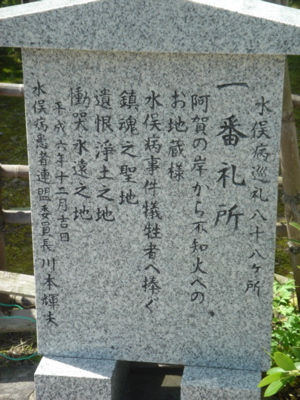 水俣病巡礼八十八ヶ所
一番札所
阿賀の岸から不知火への
お地蔵様
水俣病事件犠牲者へ捧ぐ
鎮魂之聖地
遺恨浄土之地
慟哭永遠之地
平成六年十二月吉日
水俣病患者連盟委員長川本輝夫